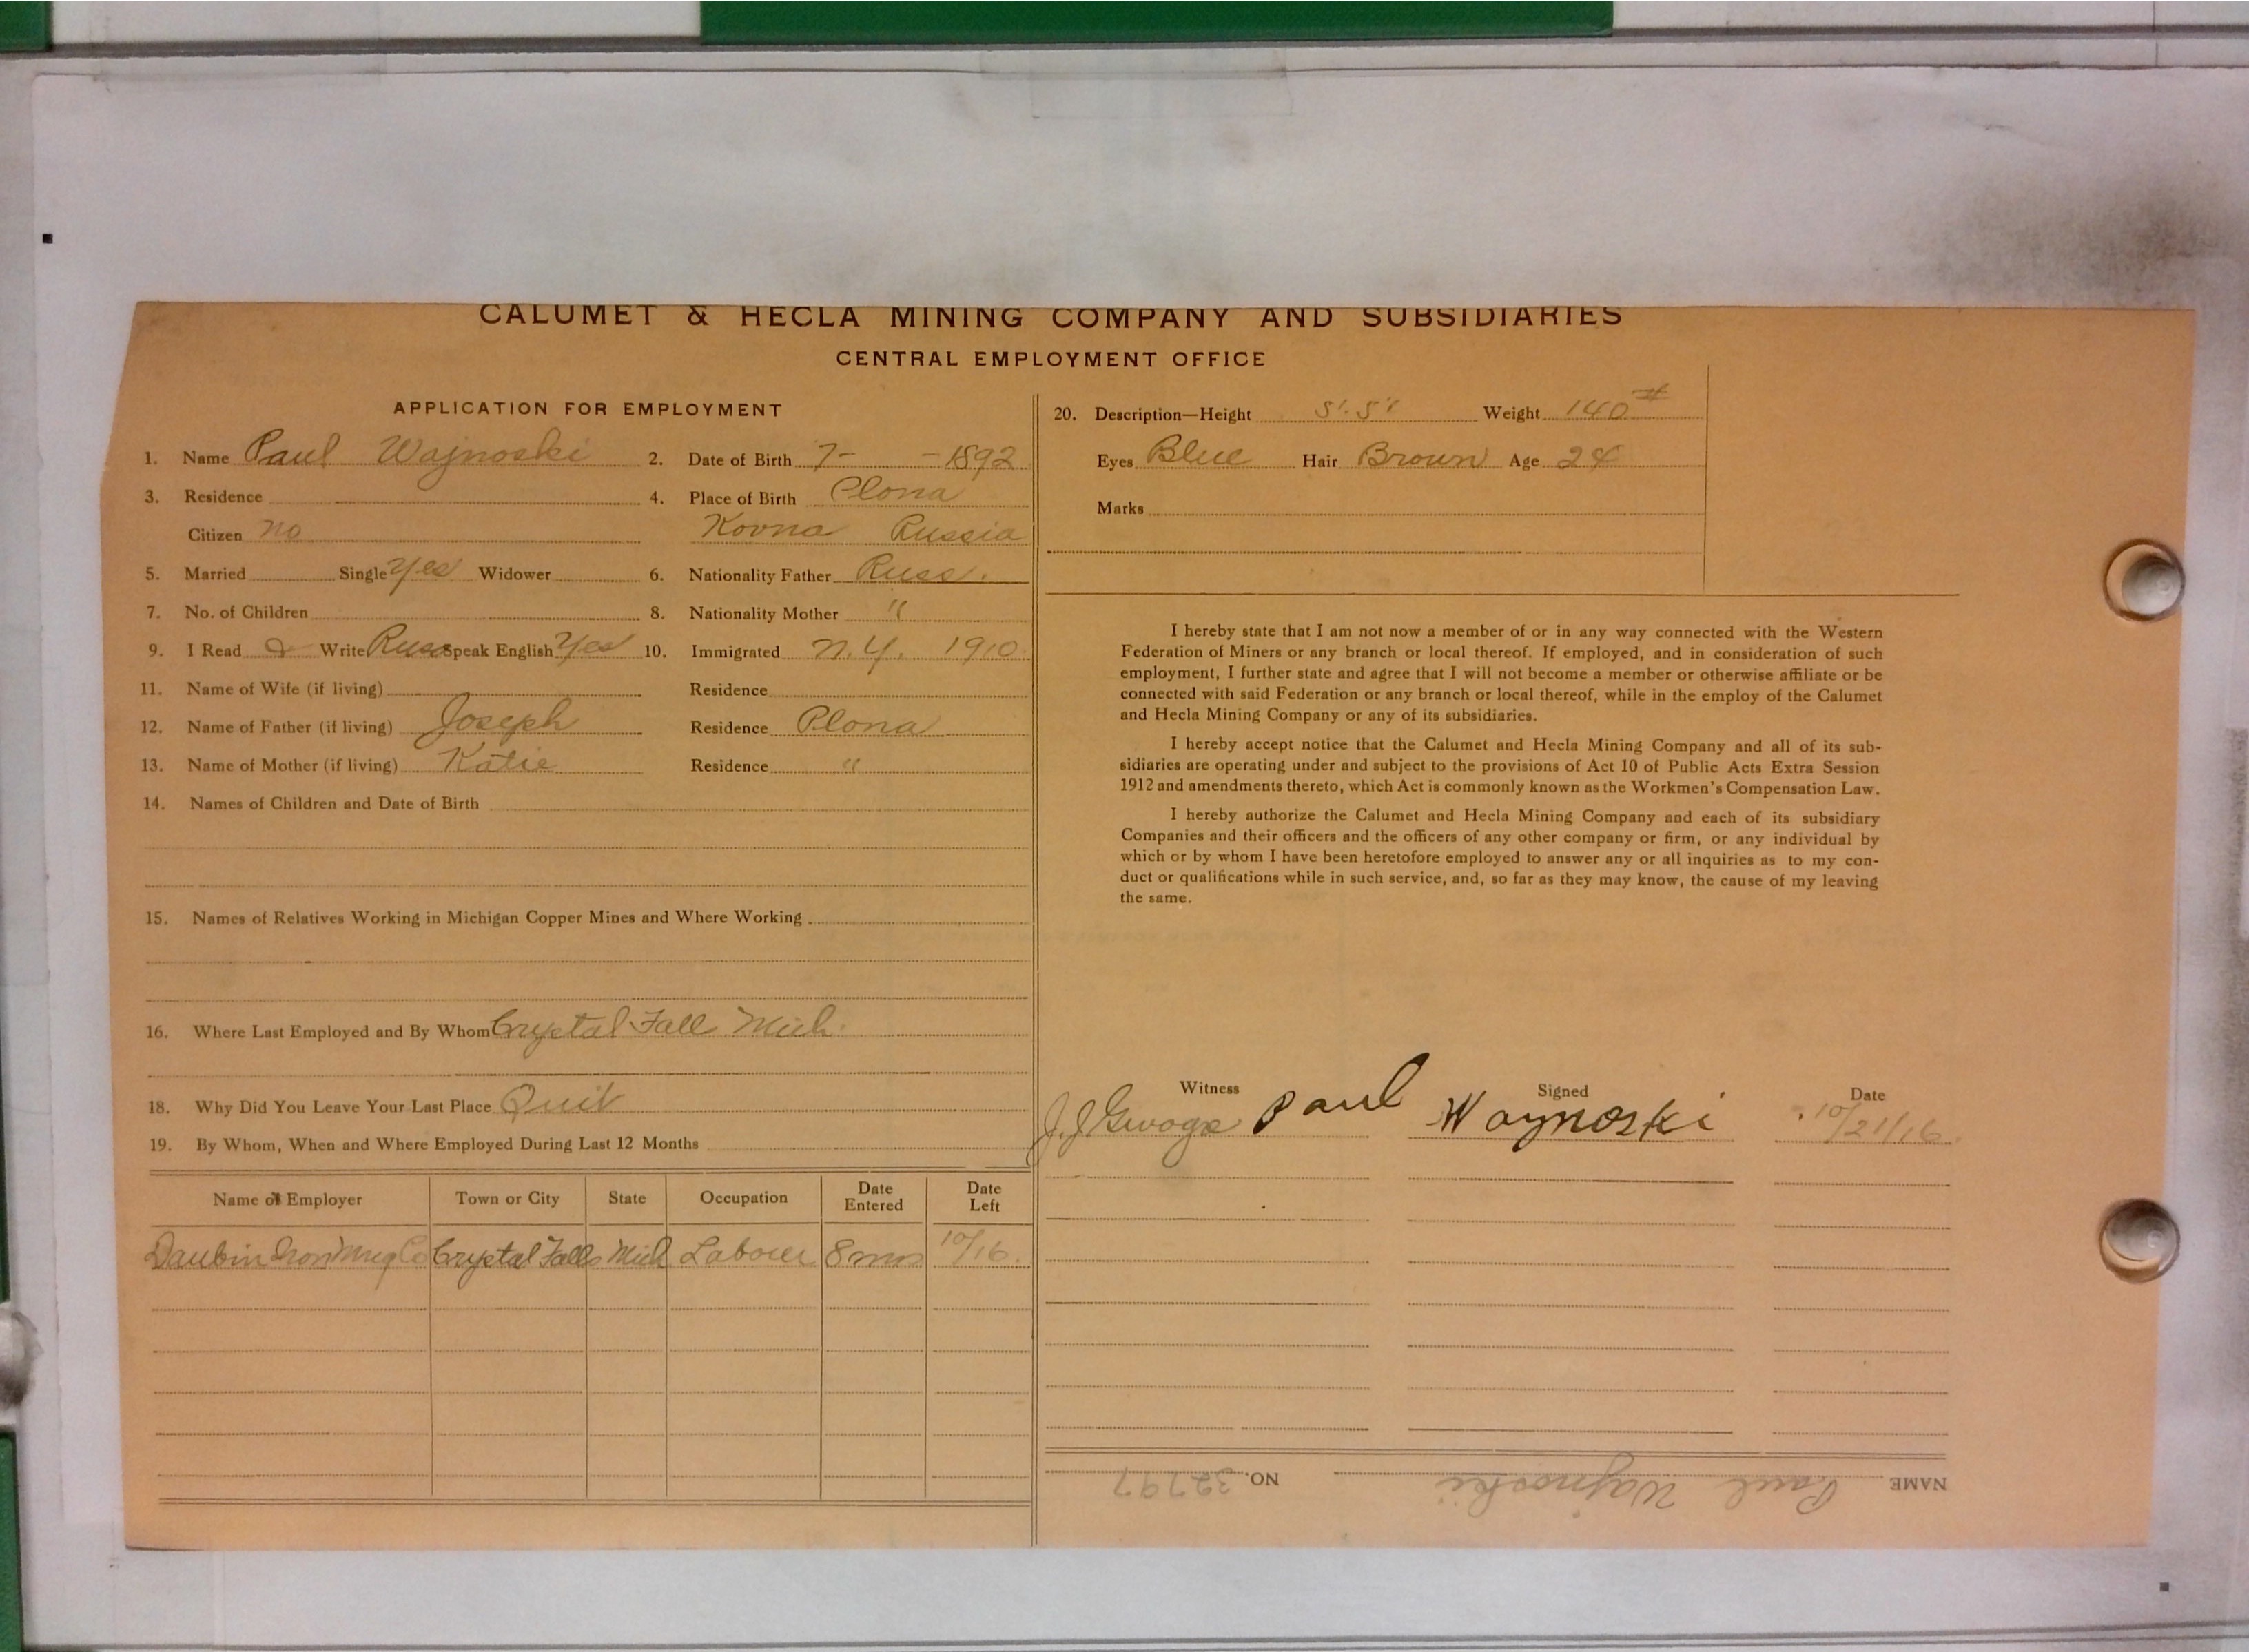 CALUMET & HECLA MINING COMPANY AND SUBSIDIARIES
CENTRAL EMPLOYMENT OFFICE
APPLICATION FOR EMPLOYMENT
1. Name Paul Wajnoski 2. Date of Birth 7- -1892
3. Residence 4. Place of Birth Plona
Citizen no Kovna Russia
5. Married Single yes Widower 6. Nationality Father Russ.
7. No. of Children 8. Nationality Mother "
9. I Read & Write Russ Speak English yes 10. Immigrated N.Y. 1910
11. Name of Wife (if living) Residence
12. Name of Father (if living) Joseph Residence Plona
13. Name of Mother (if living) Katie Residence "
14. Names of Children and Date of Birth
15. Names of Relatives Working in Michigan Copper Mines and Where Working
16. Where Last Employed and By Whom Crystal Fall Mich.
18. Why Did You Leave Your Last Place Quit
19. By Whom, When and Where Employed During Last 12 Months
Name of Employer Town or City State Occupation Date Entered Date Left
Iron Mng Co Crystal Falls Mich Labour 8 mos 10/16
20. Description—Height 5'.5" Weight 140#
Eyes Blue Hair Brown Age 24
Marks
I hereby state that I am not now a member of or in any way connected with the Western
Federation of Miners or any branch or local thereof. If employed, and in consideration of such
employment, I further state and agree that I will not become a member or otherwise affiliate or be
connected with said Federation or any branch or local thereof, while in the employ of the Calumet
and Hecla Mining Company or any of its subsidiaries.
I hereby accept notice that the Calumet and Hecla Mining Company and all of its sub-
sidiaries are operating under and subject to the provisions of Act 10 of Public Acts Extra Session
1912 and amendments thereto, which Act is commonly known as the Workmen's Compensation Law.
I hereby authorize the Calumet and Hecla Mining Company and each of its subsidiary
Companies and their officers and the officers of any other company or firm, or any individual by
which or by whom I have been heretofore employed to answer any or all inquiries as to my con-
duct or qualifications while in such service, and, so far as they may know, the cause of my leaving
the same.
Witness Signed Date
J.J. Paul Waynoski 10/21/16
NAME Paul Wajnoski NO. 32797